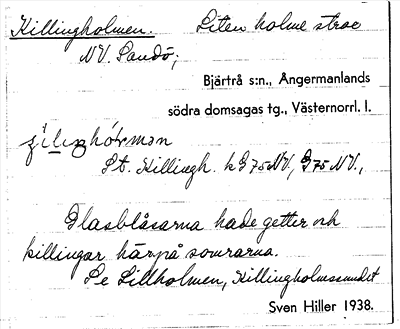 Killingholmen. Liten holme strax
NV. Sandö;
Bjärtrå s:n., Ångermanlands
södra domsagas tg., Västernorrl. l.
St. Killingh. k G75NV, G75NV.,
Glasblåsarna hade getter och
killingar härpå somrarna.
Se Lillholmen, Killingholmssundet
Sven Hiller 1938.